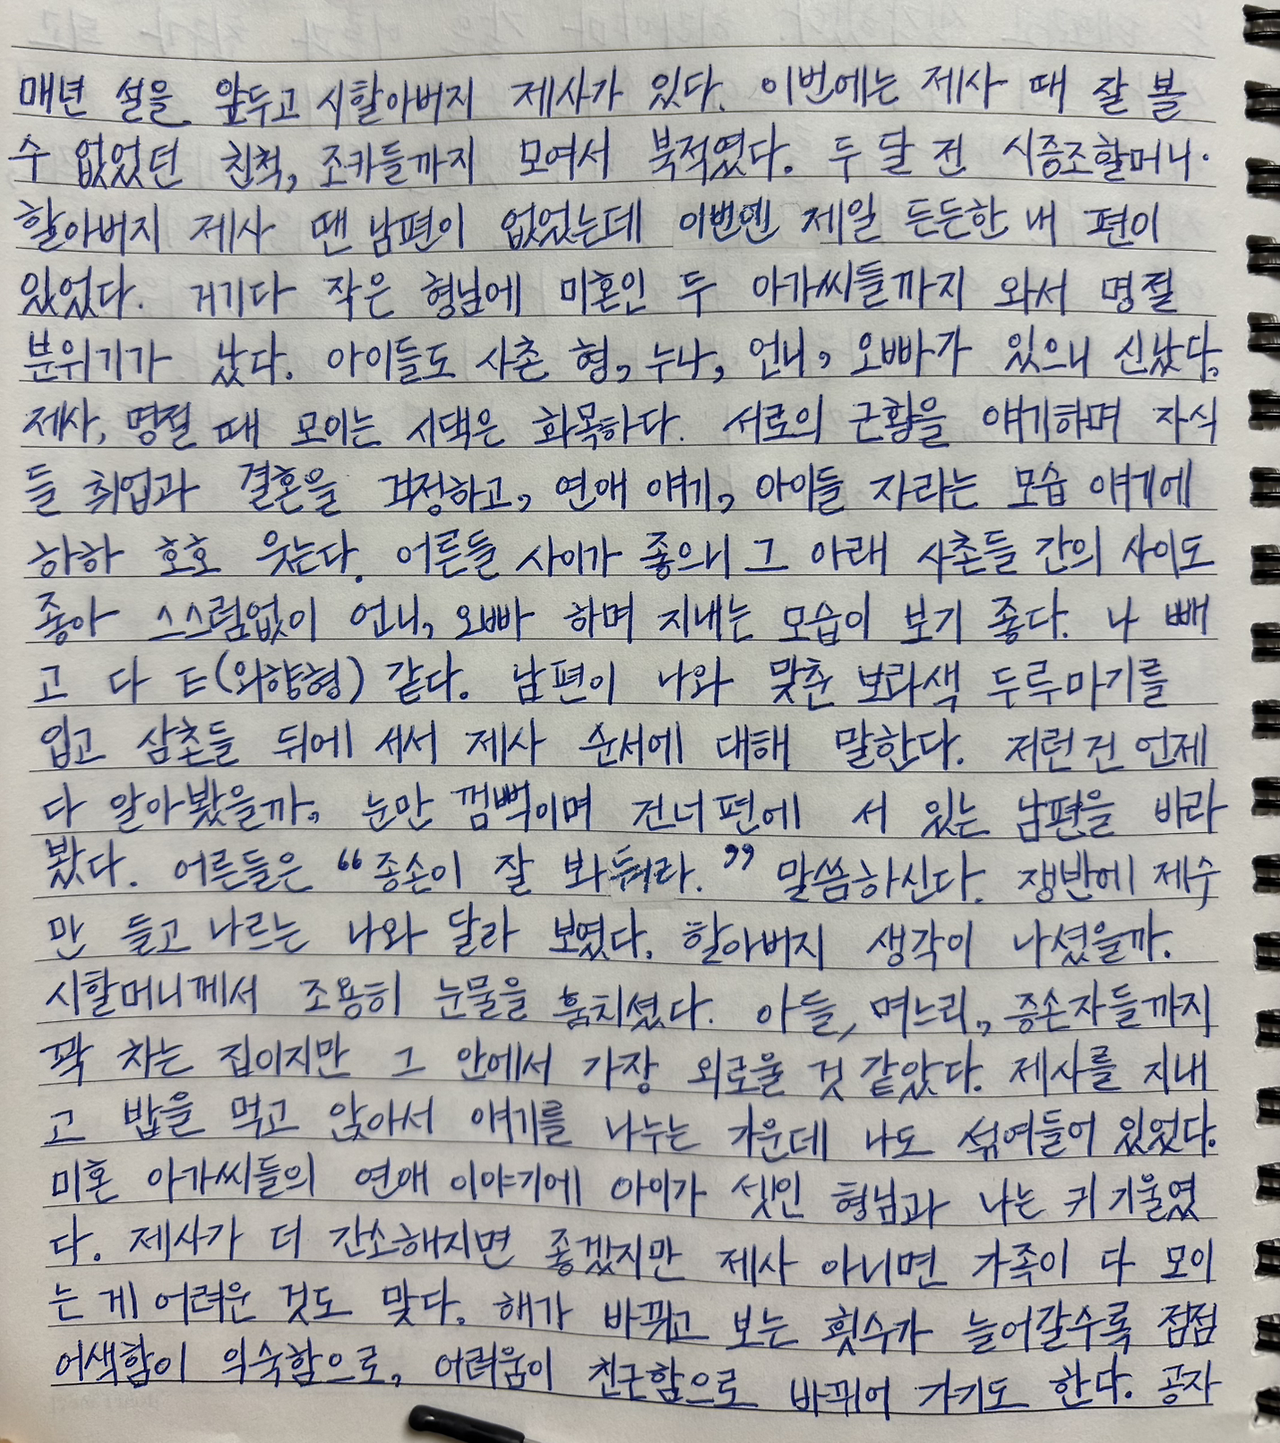 매년 설을 앞두고 시할아버지 제사가 있다. 이번에는 제사 때 잘 볼
수 없었던 친척, 조카들까지 모여서 북적였다. 두 달 전 시증조할머니·
할아버지 제사 땐 남편이 없었는데 이번엔 제일 든든한 내 편이
있었다. 거기다 작은 형님에 미혼인 두 아가씨들까지 와서 명절
분위기가 났다. 아이들도 사촌 형, 누나, 언니, 오빠가 있으니 신났다.
제사, 명절 때 모이는 시댁은 화목하다. 서로의 근황을 얘기하며 자식
들 취업과 결혼을 걱정하고, 연애 얘기, 아이들 자라는 모습 얘기에
하하 호호 웃는다. 어른들 사이가 좋으니 그 아래 사촌들 간의 사이도
좋아 스스럼없이 언니, 오빠 하며 지내는 모습이 보기 좋다. 나 빼
고 다 E(외향형) 같다. 남편이 나와 맞춘 보라색 두루마기를
입고 삼촌들 뒤에 서서 제사 순서에 대해 말한다. 저런 건 언제
다 알아봤을까. 눈만 껌뻑이며 건너편에 서 있는 남편을 바라
봤다. 어른들은 “종손이 잘 봐둬라.” 말씀하신다. 쟁반에 제수
만 들고 나르는 나와 달라 보였다. 할아버지 생각이 나셨을까.
시할머니께서 조용히 눈물을 훔치셨다. 아들, 며느리, 증손자들까지
꽉 차는 집이지만 그 안에서 가장 외로울 것 같았다. 제사를 지내
고 밥을 먹고 앉아서 얘기를 나누는 가운데 나도 섞여들어 있었다.
미혼 아가씨들의 연애 이야기에 아이가 셋인 형님과 나는 귀 기울였
다. 제사가 더 간소해지면 좋겠지만 제사 아니면 가족이 다 모이
는 게 어려운 것도 맞다. 해가 바뀌고 보는 횟수가 늘어갈수록 점점
어색함이 익숙함으로, 어려움이 친근함으로 바뀌어 가기도 한다. 공자